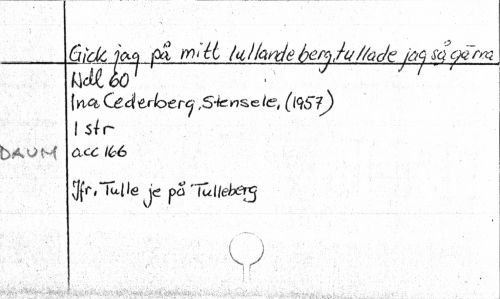 Gick jag på mitt lullande berg, tullade jag så gärna
Ndl 60
Ina Cederberg, Stensele, (1957)
1 str
DAUM acc 166
Jfr, Tulle je på Tulleberg